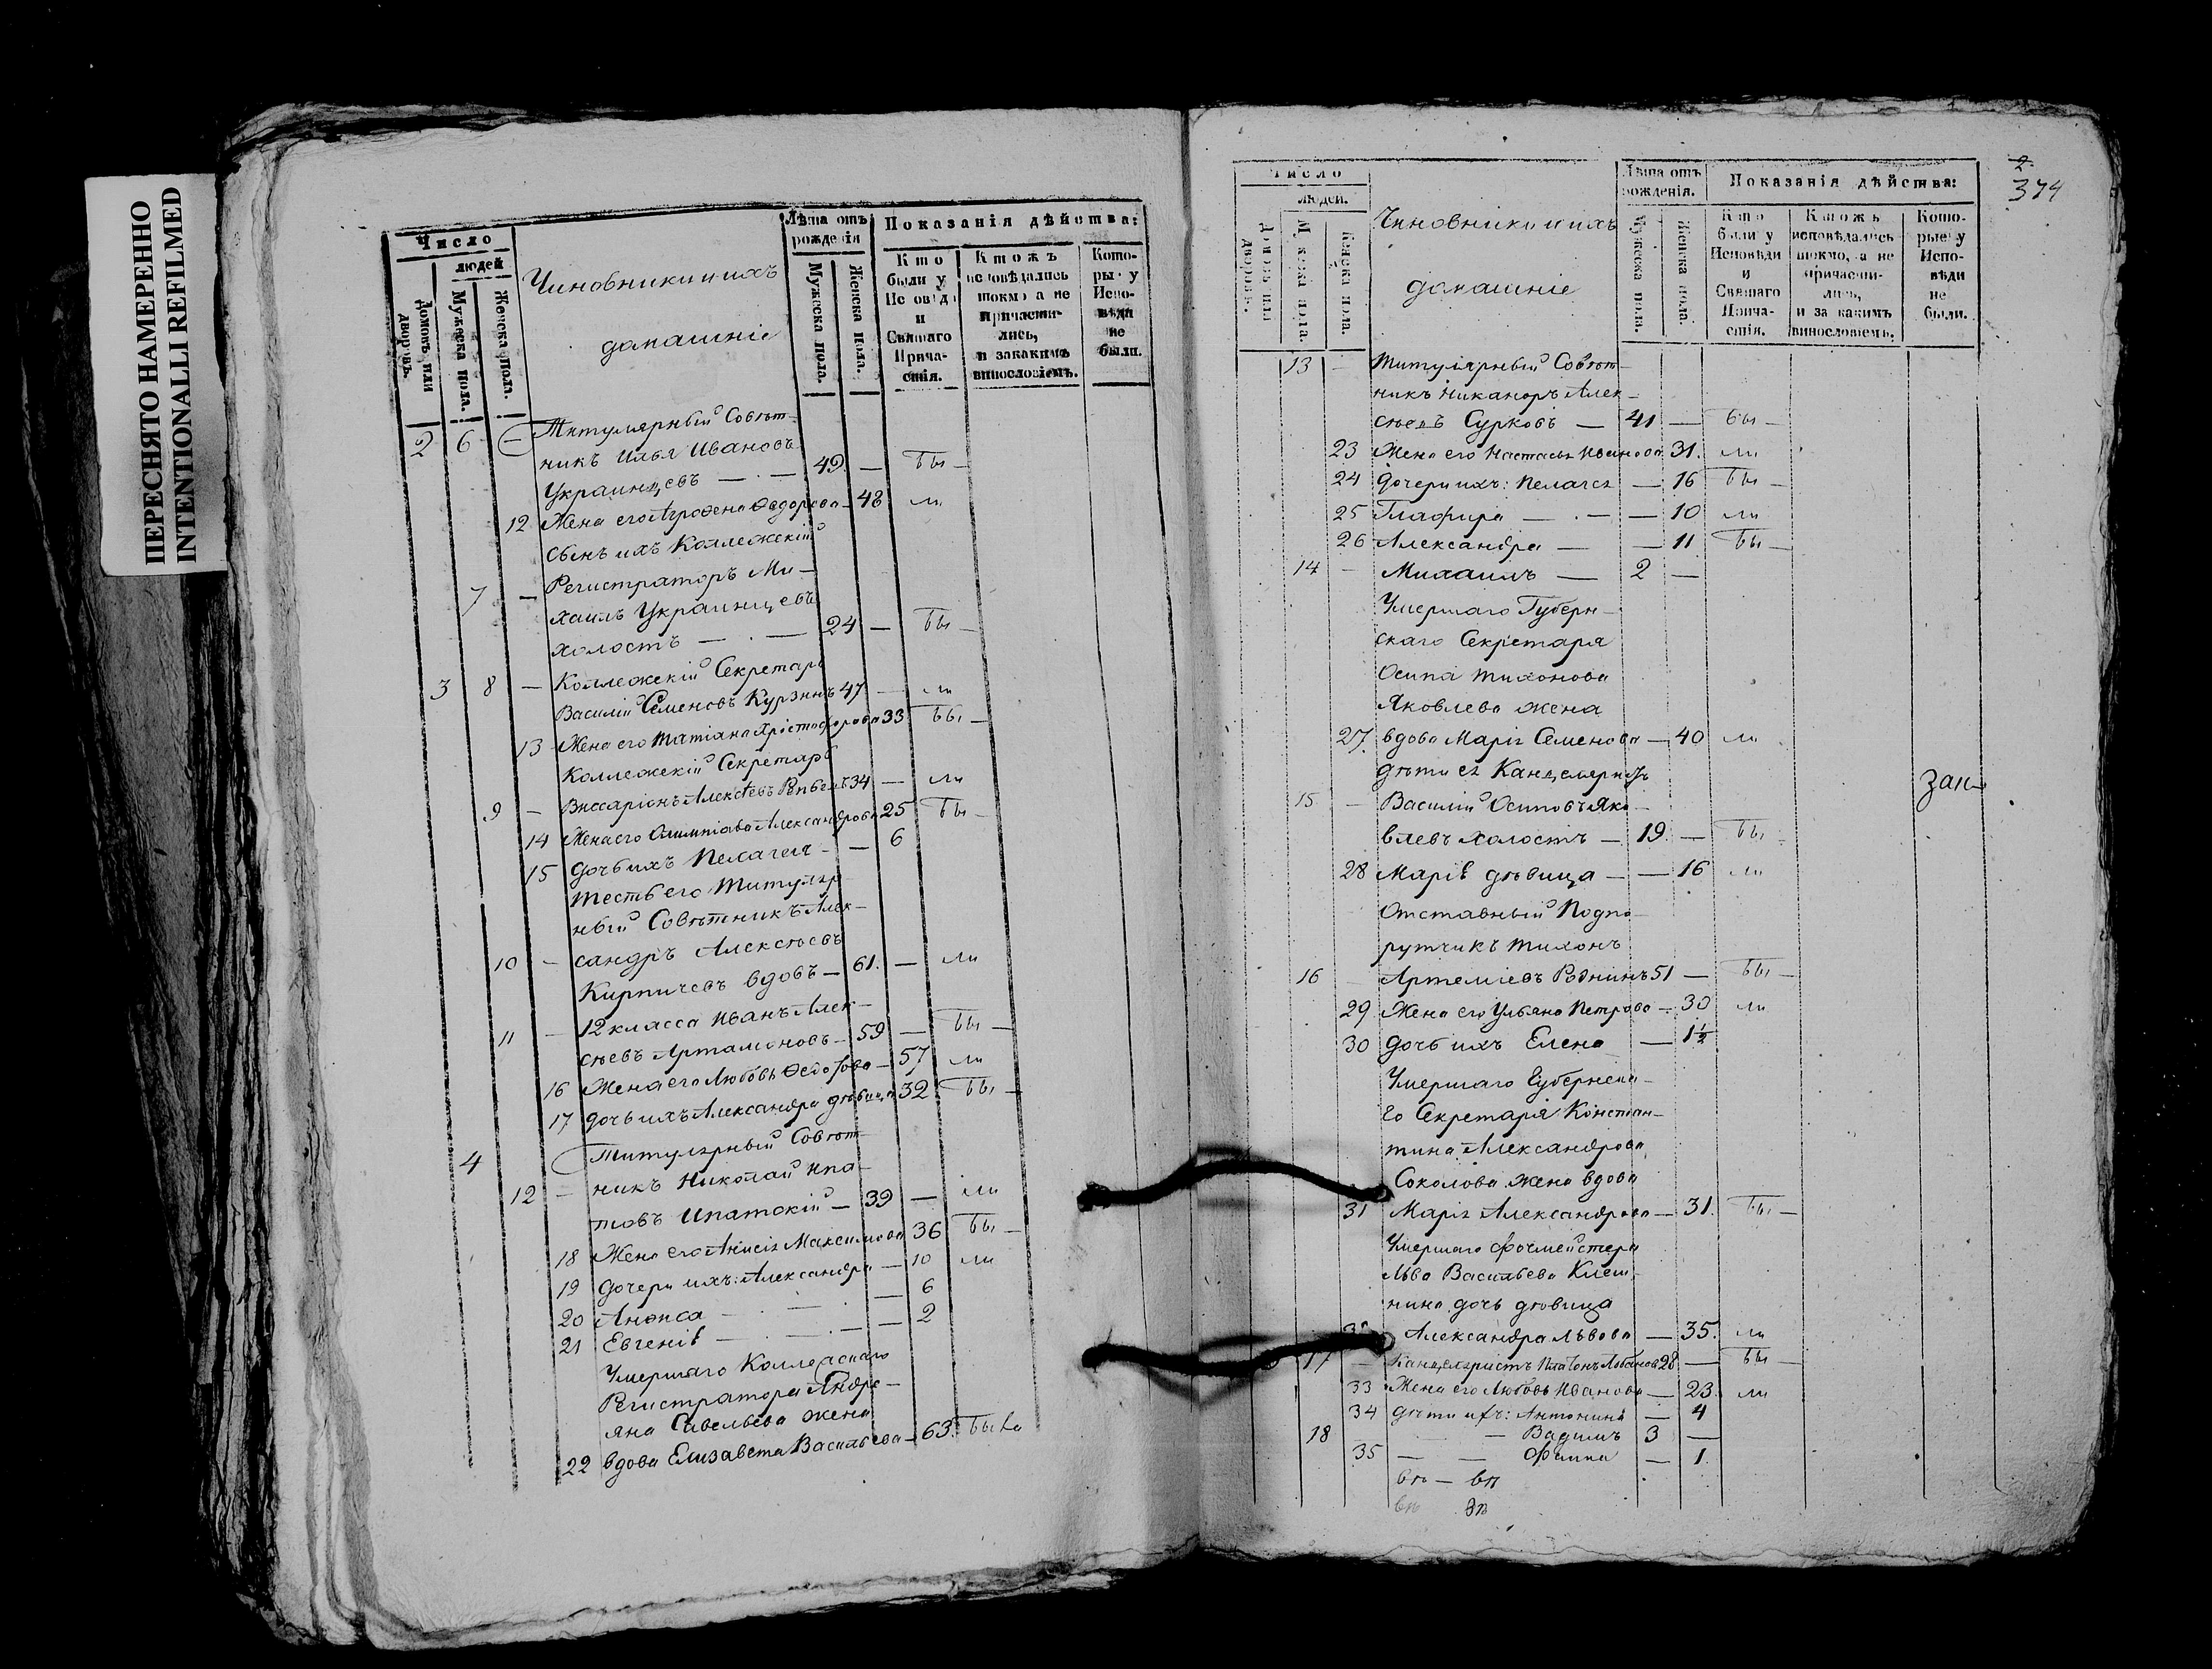 ПЕРЕСНЯТО НАМЕРЕННО
INTENTIONALLI REFILMED
Число
людей
Домовъ или дворовъ.
Мужеска пола.
Женска пола.
Чиновники и ихъ
домашніе
Лѣта отъ рожденія
Мужеска пола.
Женска пола.
Показанія дѣйства:
Кто были у Исповѣди и Святаго Причастія.
Ктожъ исповѣдались токмо а не причастились, и закакимъ винословіемъ.
Которые у Исповѣди не были.
2 6 — Титулярный Совѣт-
никъ Илья Ивановъ
Украинцевъ — 49 — бы —
12 Жена его Агрофена Федорова — 48 ли
Сынъ ихъ Коллежскій
7 — Регистраторъ Ми-
хаилъ Украинцевъ
холостъ — 24 — бы —
3 8 — Коллежскій Секретарь
Василій Семеновъ Курзинъ 47 — ли
13 Жена его Татіана Христофорова 33 бы —
Коллежскій Секретарь
9 — Виссаріонъ Алексѣевъ 34 — ли
14 Жена его Олимпіада Александрова 25 бы —
15 Дочь ихъ Пелагея — — 6
Тесть его Титуляр
ный Совѣтникъ Алек-
10 — сандръ Алексѣевъ
Кирпичевъ вдовъ — 61. — ли
12 класса Иванъ Алек-
11 — сѣевъ Артамоновъ — 59 — бы —
16 Жена его Любовь Федотова — 57 ли
17 дочь ихъ Александра дѣвица 32 бы —
4 Титулярный Совѣт-
12 — никъ Николай Ипа-
товъ Ипатскій — 39 — ли
18 Жена его Анисія Максимова 36 бы —
19 дочери ихъ: Александра — 10 ли
20 Анѳиса — — 6
21 Евгенія — — 2
Умершаго Коллежскаго
Регистратора Андре-
яна Савельева жена
22 вдова Елизавета Васильева — 63. была
2
374
Число
людей.
Домовъ или дворовъ.
Мужеска пола.
Женска пола.
Чиновники и ихъ
домашніе
Лѣта отъ рожденія.
Мужеска пола.
Женска пола.
Показанія дѣйства:
Кто были у Исповѣди и Святаго Причастія.
Ктожъ исповѣдались токмо, а не причастились, и за какимъ винословіемъ.
Которые у Исповѣди не были.
13 — Титулярный Совѣт-
никъ Никаноръ Алек-
сѣевъ Сурковъ — 41 — бы —
23 Жена его Настасья Иванова 31. ли
24 Дочери ихъ: Пелагея — 16 бы —
25 Глафира — — 10 ли
26 Александра — — 11 бы —
14 — Михаилъ — 2 —
Умершаго Губерн-
скаго Секретаря
Осипа Тихонова
Яковлева жена
27. вдова Марія Семенова — 40 ли
дѣти ея Канцеляристъ
15 — Василій Осиповъ Яко-
влевъ холостъ — 19. — бы —
28 Марія дѣвица — — 16 ли
Отставный Подпо-
рутчикъ Тихонъ
16 Артеміевъ Роднинъ 51 — бы —
29 Жена его Ульяна Петрова — 30 ли
30 дочь ихъ Елена — 1½
Умершаго Губернска-
го Секретаря Констан-
тина Александрова
Соколова жена вдова
31 Марія Александрова — 31. бы —
Умершаго Форшмейстера
Льва Васильева Клеш-
нина дочь дѣвица
Александра Львова — 35. ли
17 — Канцеляристъ Платонъ Лобановъ 28 — бы —
33 Жена его Любовь Иванова — 23. ли
34 дѣти ихъ: Антонина — 4
18 — — Вадимъ 3 —
35 — — Фаина — 1